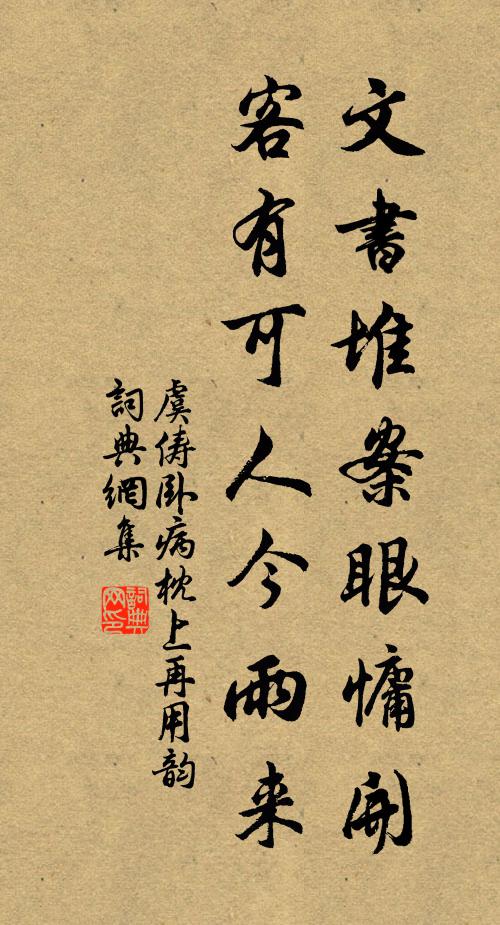 文書堆案眼慵開
客有可人今雨来
虞儔卧病枕上再用韵
詞典網集
詞典网印